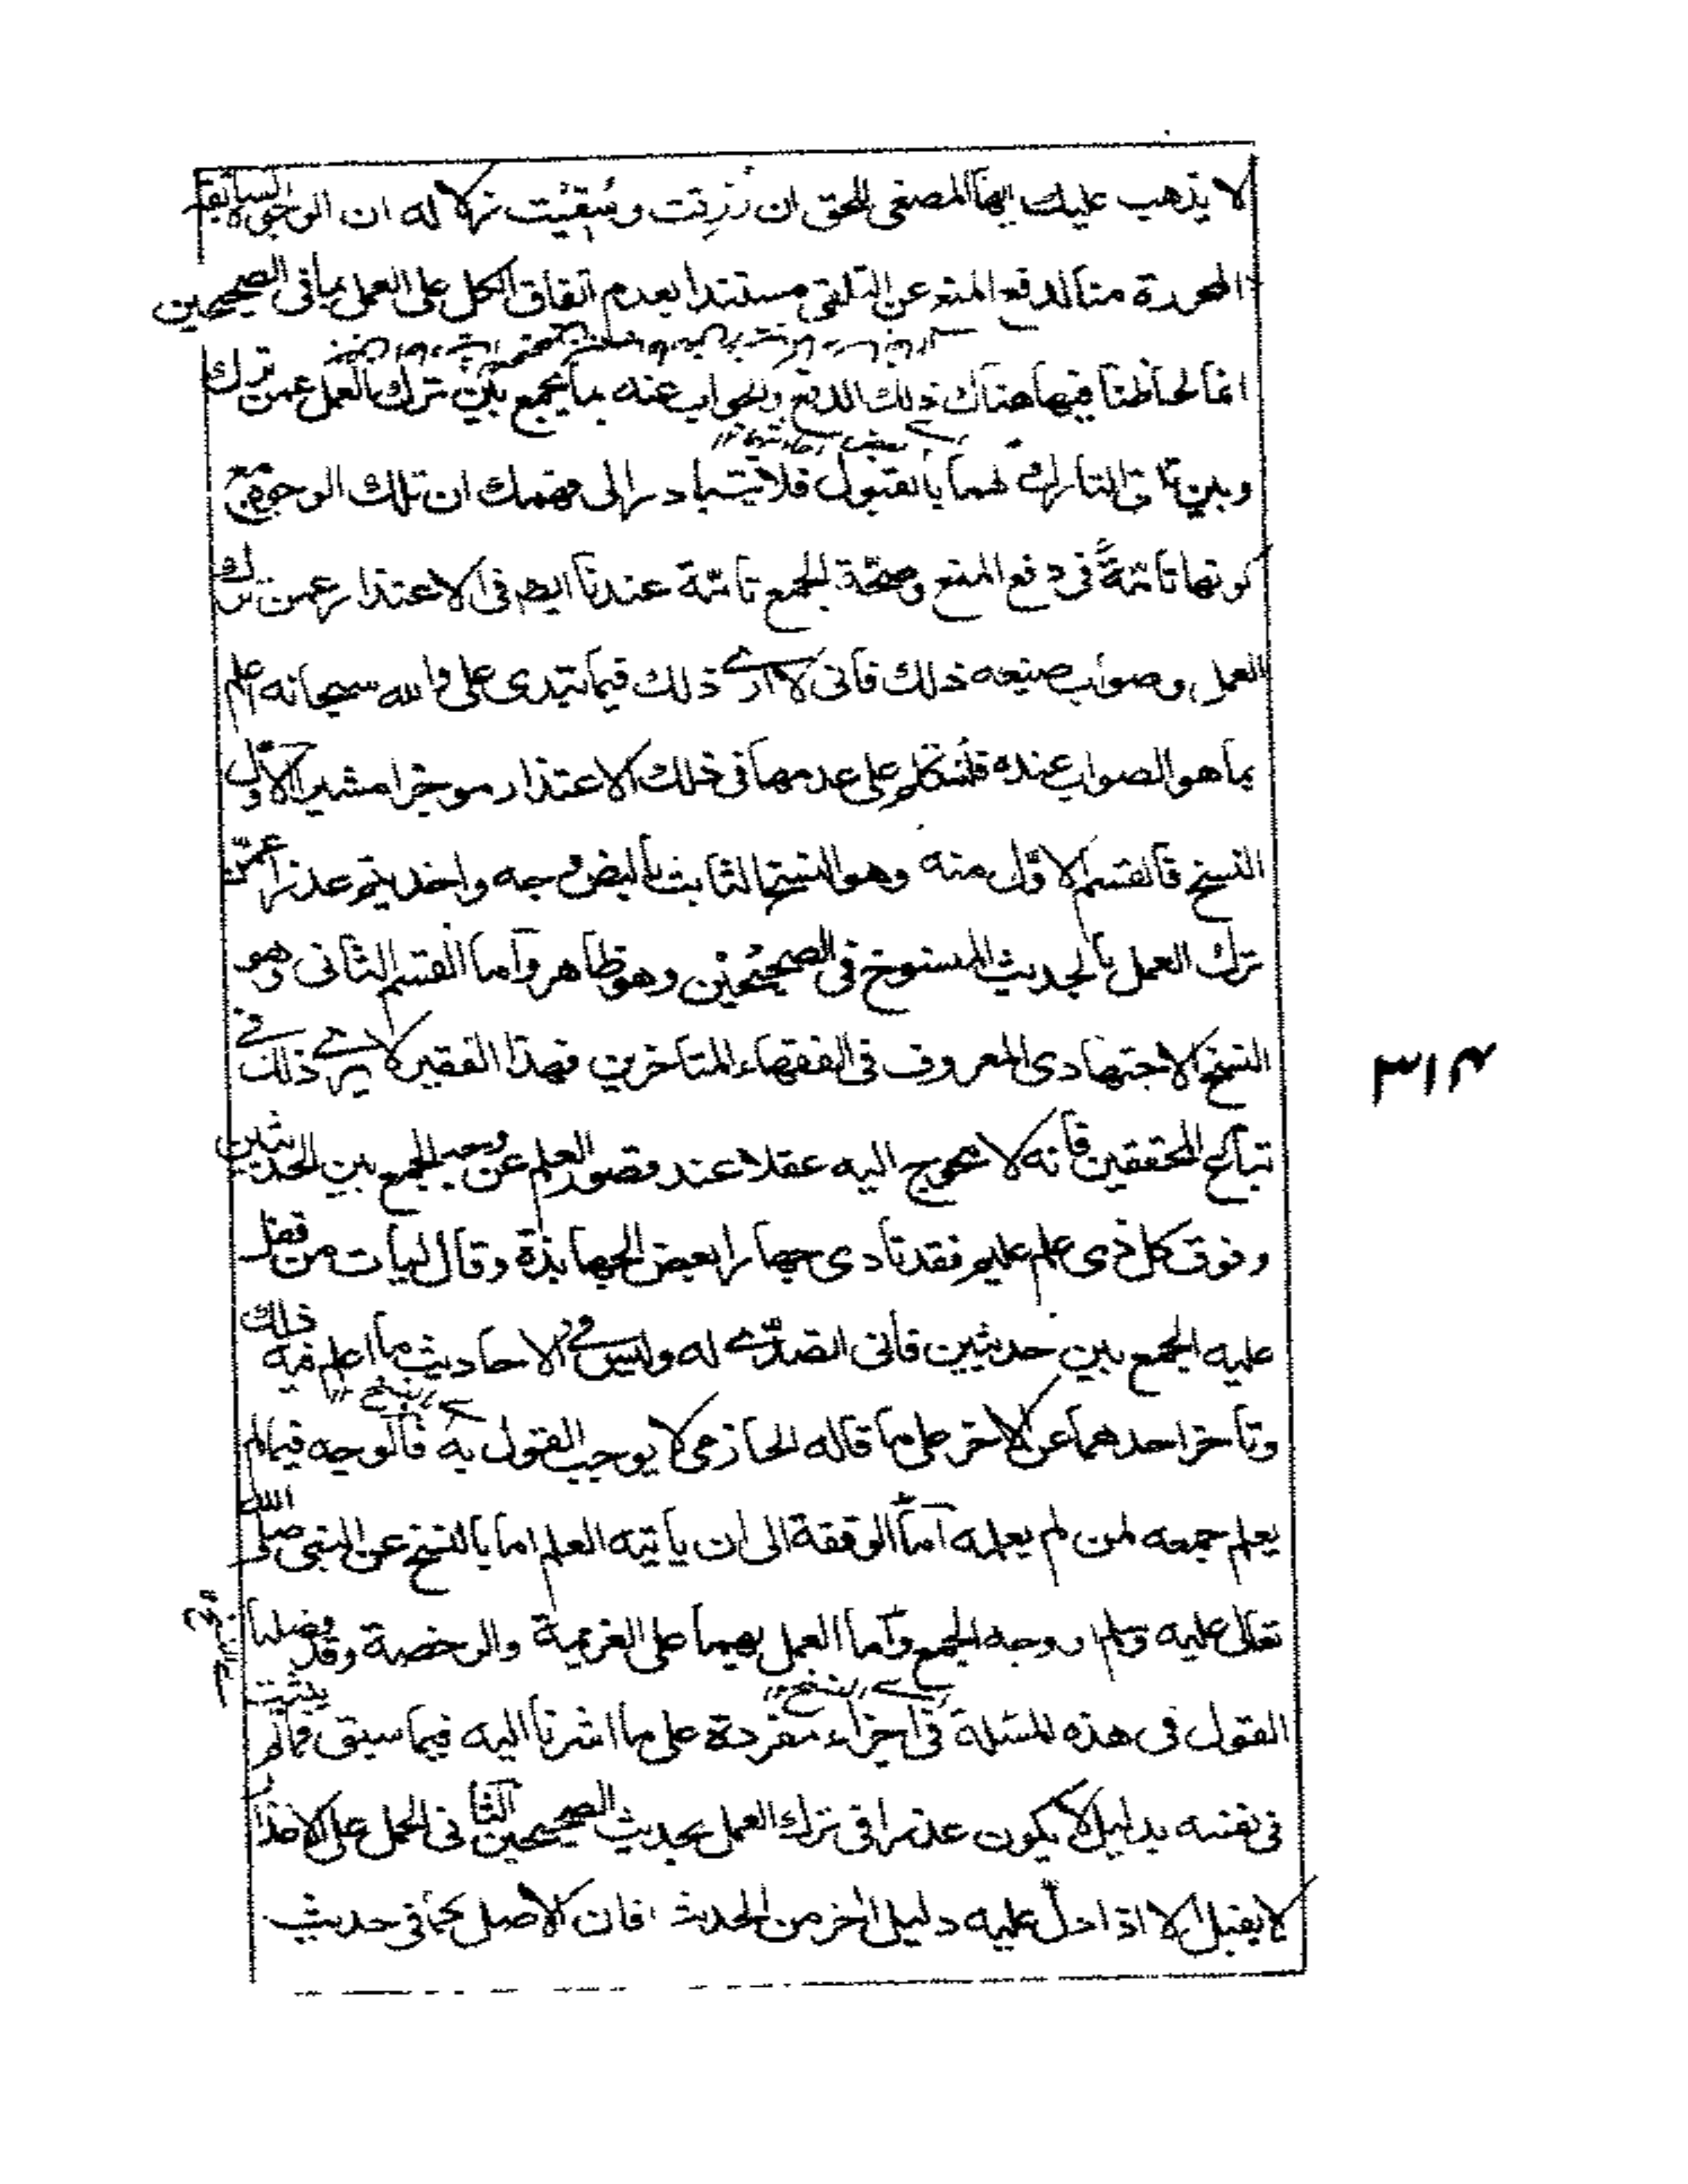 لا يذهب عليك ايها المصغى للحق ان رُزِقت وسُقيت زلاله ان الوجوه السابقة
المحررة منا لدفع المنع عن التلقى مستندا بعدم اتفاق الكل على العمل بما فى الصحيحين
انما لحاظنا فيها هناك ذلك الدفع والجواب عنه بما يجمع بين ترك العمل عمن ترك
وبين تلقى التارك لهما بالقبول فلا يتبادر الى فهمك ان تلك الوجوه مع
كونها تامّةً فى دفع المنع وصحّة الجمع تامّة عندنا ايضا فى الاعتذار عمن ترك
العمل وصواب صنيعه ذلك فانى لا ارى ذلك فيما يبتدى على والله سبحانه اعلم
بما هو الصواب عنده فلنتكلم على عدمها فى ذلك الاعتذار موخرا مشيرا الاول
النسخ فالقسم الاوّل منه وهو النسخ الثابت بالنص وجه واحد يتم عذرا عمّن
ترك العمل بالحديث المنسوخ فى الصحيحين وهو ظاهر وأما القسم الثانى وهو
النسخ الاجتهادى المعروف فى الفقهاء المتاخرين فهذا الفقير لا يرى ذلك فى
تبائع المحققين فانه لا محوج اليه عقلا عند قصور العلم عن وجه الجمع بين الحديثين
وفوق كل ذى علم عليم فقد نادى جهارا بعض الجهابذة وقال ليأت من تعذر
عليه الجمع بين حديثين فانى اتصدّى له وليس فى الاحاديث ما اعلم فيه ذلك
وتأخر احدهما عن الاخر على ما قاله الحازمى لا يوجب القول به فالوجه فيما لم
اى بالنسخ ١٢
يعلم جمعه لمن لم يعلمه أمّا الوقفة الى ان يأتيه العلم اما بالنسخ عن النبى صلى الله
تعالى عليه وسلم او وجه الجمع وأما العمل بهما على العزيمة والرخصة وقد فصلنا
القول فى هذه المسئلة فى اجزاء مفردة على ما اشرنا اليه فيما سبق فما لم يثبت
اى النسخ ١٢
فى نفسه بدليل لا يكون عذرا فى ترك العمل بحديث الصحيحين الثانى الحمل على الاخذ
لا يقبل الا اذا دلّ عليه دليل اٰخر من الحديث فان الاصل بما فى حديث
٣١٤